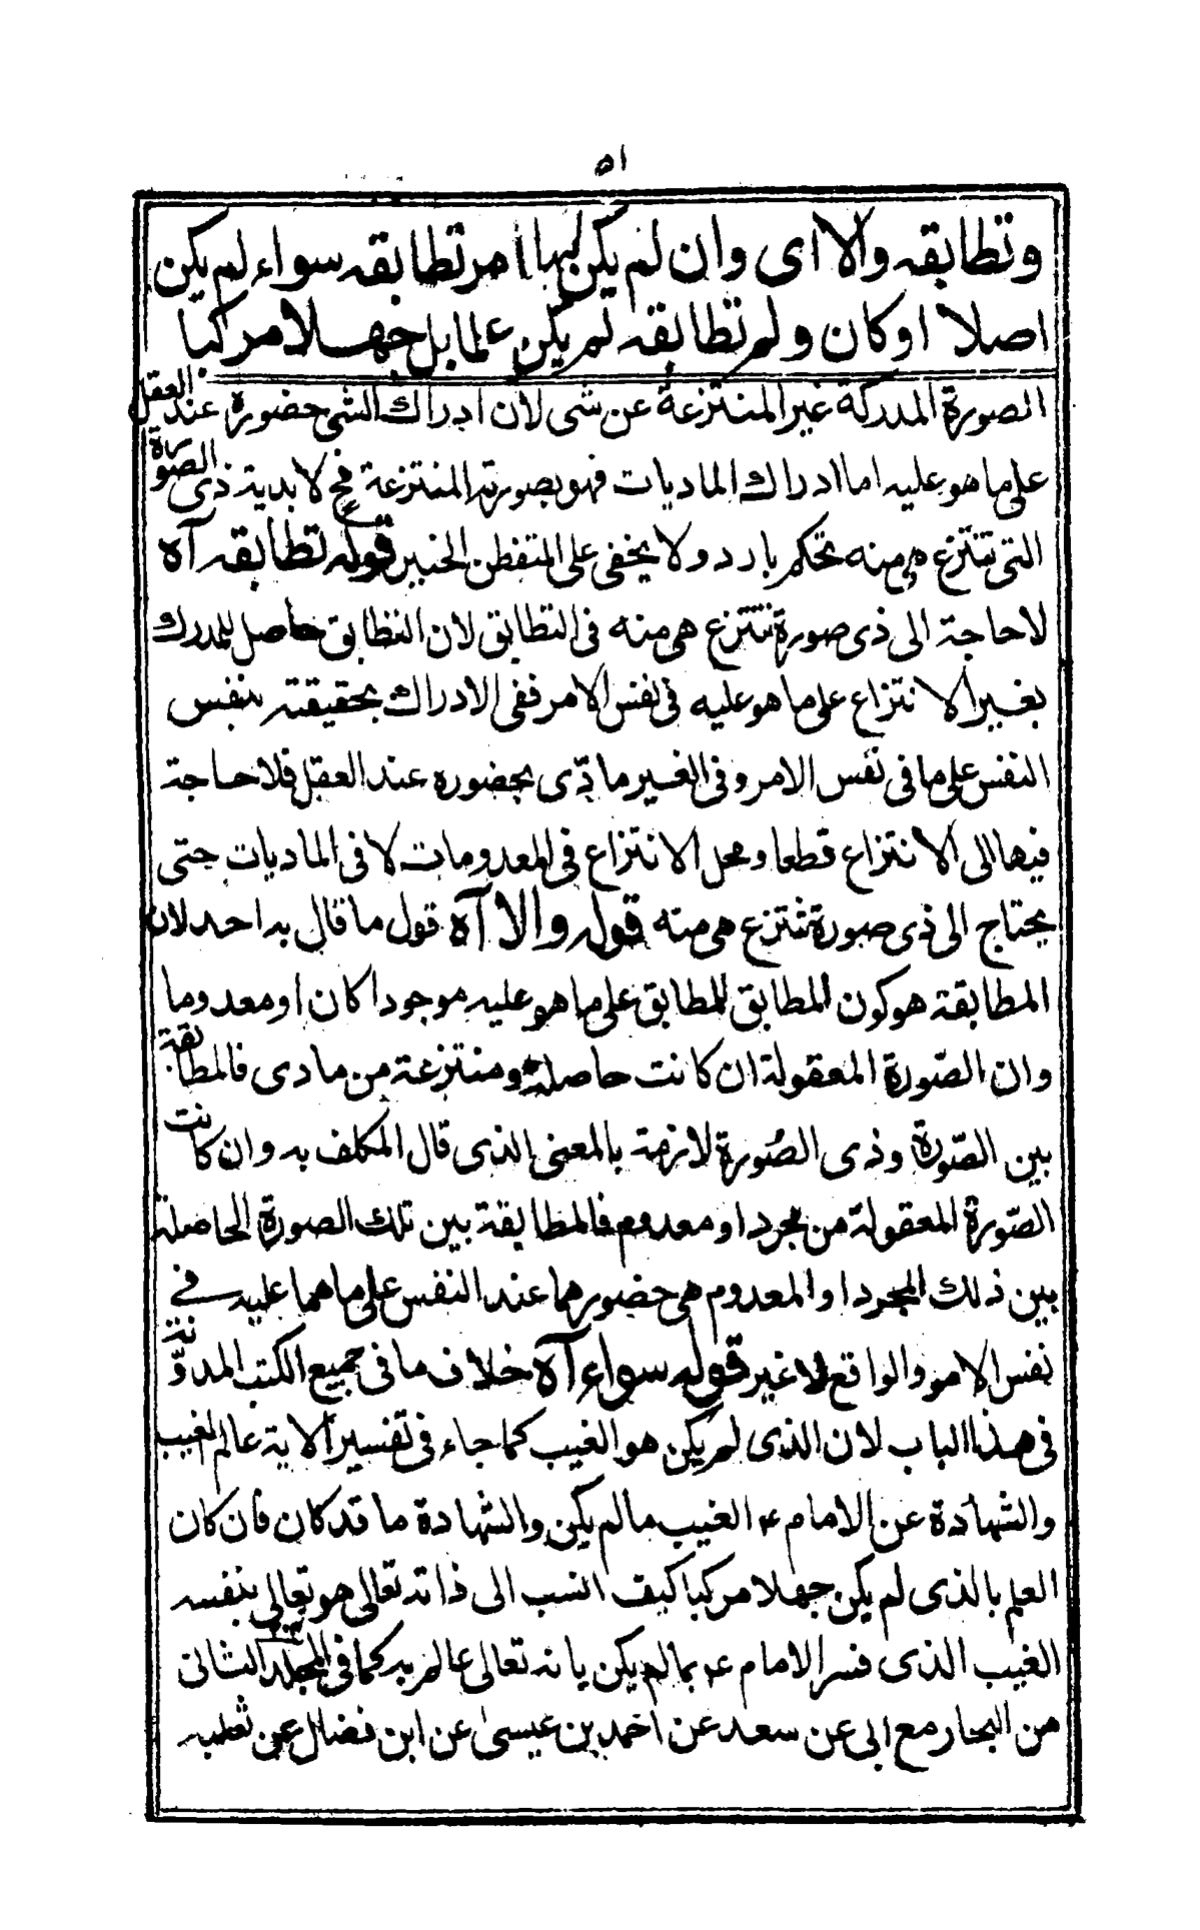 ٥١
وتطابقه والا اى وان لم يكن لها امر تطابقه سواء لم يكن
اصلا او كان ولم تطابقه لم يكن علما بل جهلا مركبا
الصورة المدركة غير المنتزعة عن شى لان ادراك الشى حضوره عند العقل
على ما هو عليه اما ادراك الماديات فهو بصورته المنتزعة فح لا بدية ذى الصورة
التى تنتزع هى منه تحكم بارد ولا يخفى على المتفطن الخبير قوله تطابقه آه
لا حاجة الى ذى صورة تنتزع هى منه فى التطابق لان التطابق حاصل للمدرك
بغير الانتزاع على ما هو عليه فى نفس الامر ففى الادراك بحقيقته بنفس
النفس على ما فى نفس الامر وفى الغير مادّى بحضوره عند العقل فلا حاجة
فيها الى الانتزاع قطعا ومحل الانتزاع فى المعدومات لا فى الماديات حتى
يحتاج الى ذى صورة تنتزع هى منه قوله والا آه قول ما قال به احد لان
المطابقة هو كون المطابق للمطابق على ما هو عليه موجودا كان او معدوما
وان الصّورة المعقولة ان كانت حاصلة ومنتزعة من مادى فالمطابقة
بين الصّورة وذى الصّورة لازمة بالمعنى الذى قال المكلف به وان كانت
الصّورة المعقولة من مجرد او معدوم فالمطابقة بين تلك الصورة الحاصلة
بين ذلك المجرد او المعدوم هى حضورهما عند النفس على ما هما عليه فى
نفس الامر والواقع لا غير قوله سواء آه خلاف ما فى جميع الكتب المدوّنة
فى هذا الباب لان الذى لم يكن هو الغيب كما جاء فى تفسير الاية عالم الغيب
والشهادة عن الامام ع الغيب ما لم يكن والشهادة ما قد كان فان كان
العلم بالذى لم يكن جهلا مركبا كيف انسب الى ذاته تعالى هو تعالى بنفسه
الغيب الذى فسر الامام ع بما لم يكن بانه تعالى عالم به كما فى المجلد الثانى
من البحار مع ابى عن سعد عن احمد بن عيسى عن ابن فضال عن ثعلبه